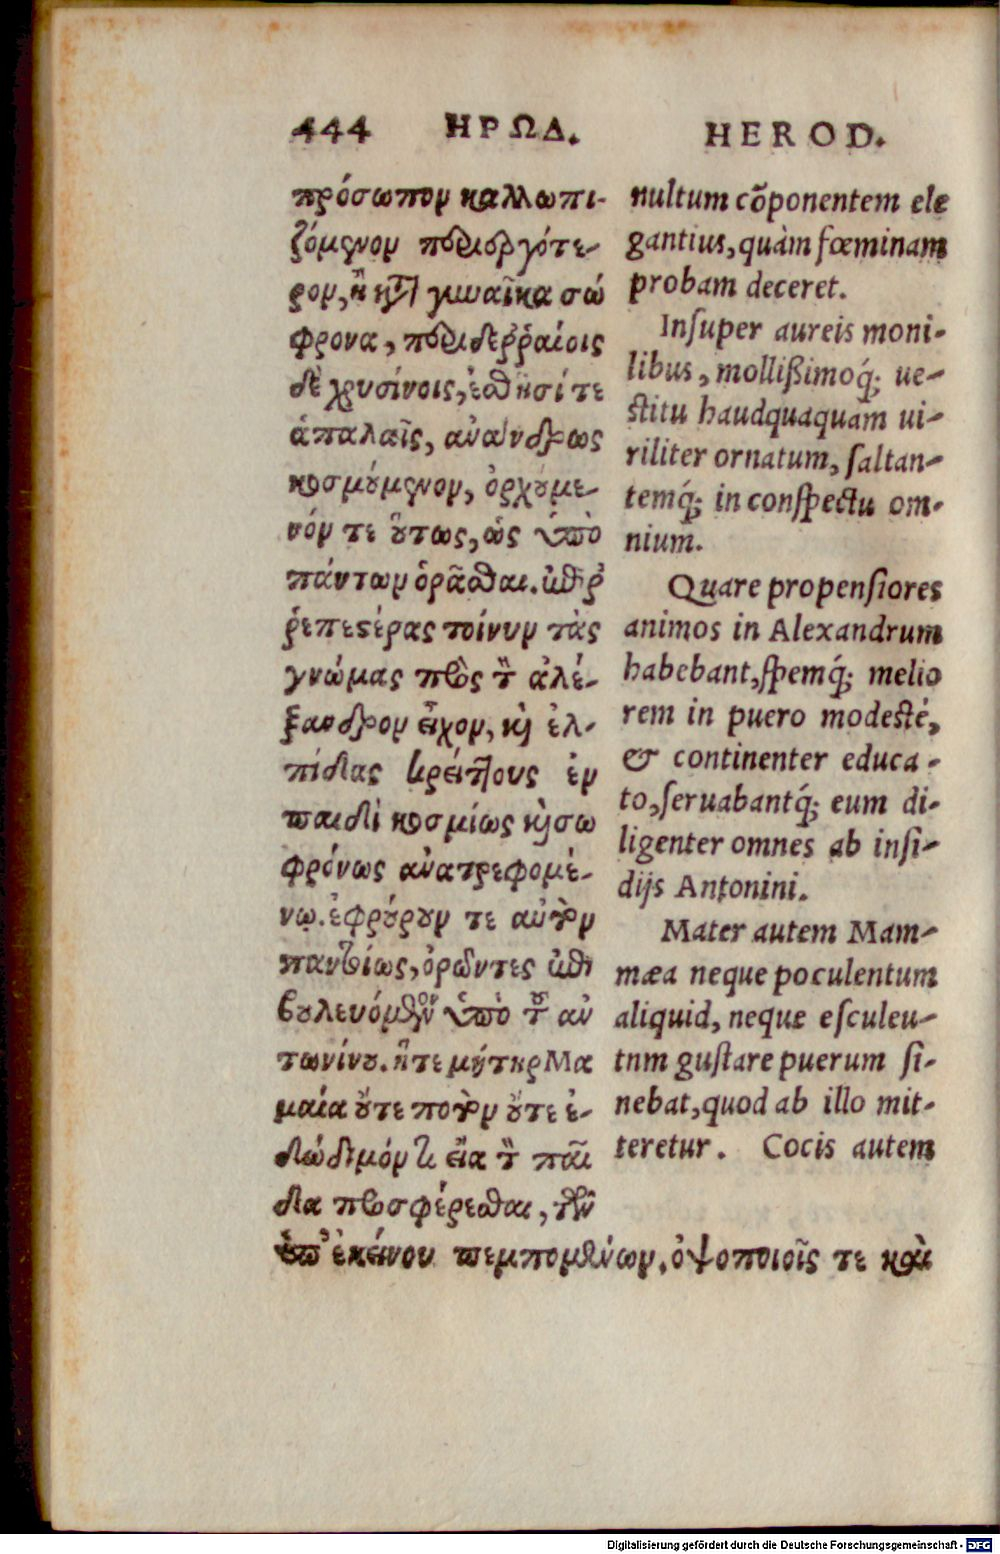 444 ΗΡΩΔ. HEROD.
πρόσωπον καλλωπι-
ζόμενον περιεργότε-
ρον, ἢ κατὰ γυναῖκα σώ
φρονα, περιδεῤῥαίοις
δὲ χρυσίνοις, ἐσθῆσί τε
ἁπαλαῖς, ἀνάνδρως
κοσμούμενον, ὀρχούμε-
νόν τε οὕτως, ὡς ὑπὸ
πάντων ὁρᾶσθαι. ἐπιῤ
ῥεπεστέρας τοίνυν τὰς
γνώμας πρὸς τὸν ἀλέ-
ξανδρον εἶχον, καὶ ἐλ-
πίδας κρείττους ἐν
παιδὶ κοσμίως καὶ σω
φρόνως ἀνατρεφομέ-
νῳ. ἐφρούρουν τε αὐτὸν
παντοίως, ὁρῶντες ἐπι
βουλευόμενον ὑπὸ τοῦ ἀν
τωνίνου. ἥτε μήτηρ Μα
μαία οὔτε ποτὸν οὔτε ἐ-
δώδιμόν τι εἴα τὸν παῖ
δα προσφέρεσθαι, τῶν
ὑπ' ἐκείνου πεμπομένων. ὀψοποιοῖς τε καὶ
nultum cõponentem ele
gantius, quàm fœminam
probam deceret.
Insuper aureis moni-
libus, mollißimoq́; ue-
stitu haudquaquam ui-
riliter ornatum, saltan-
temq́; in conspectu om-
nium.
Quare propensiores
animos in Alexandrum
habebant, spemq́; melio
rem in puero modestè,
& continenter educa-
to, seruabantq́; eum di-
ligenter omnes ab insi-
dijs Antonini.
Mater autem Mam-
mæa neque poculentum
aliquid, neque esculeu-
tnm gustare puerum si-
nebat, quod ab illo mit-
teretur. Cocis autem
Digitalisierung gefördert durch die Deutsche Forschungsgemeinschaft - DFG